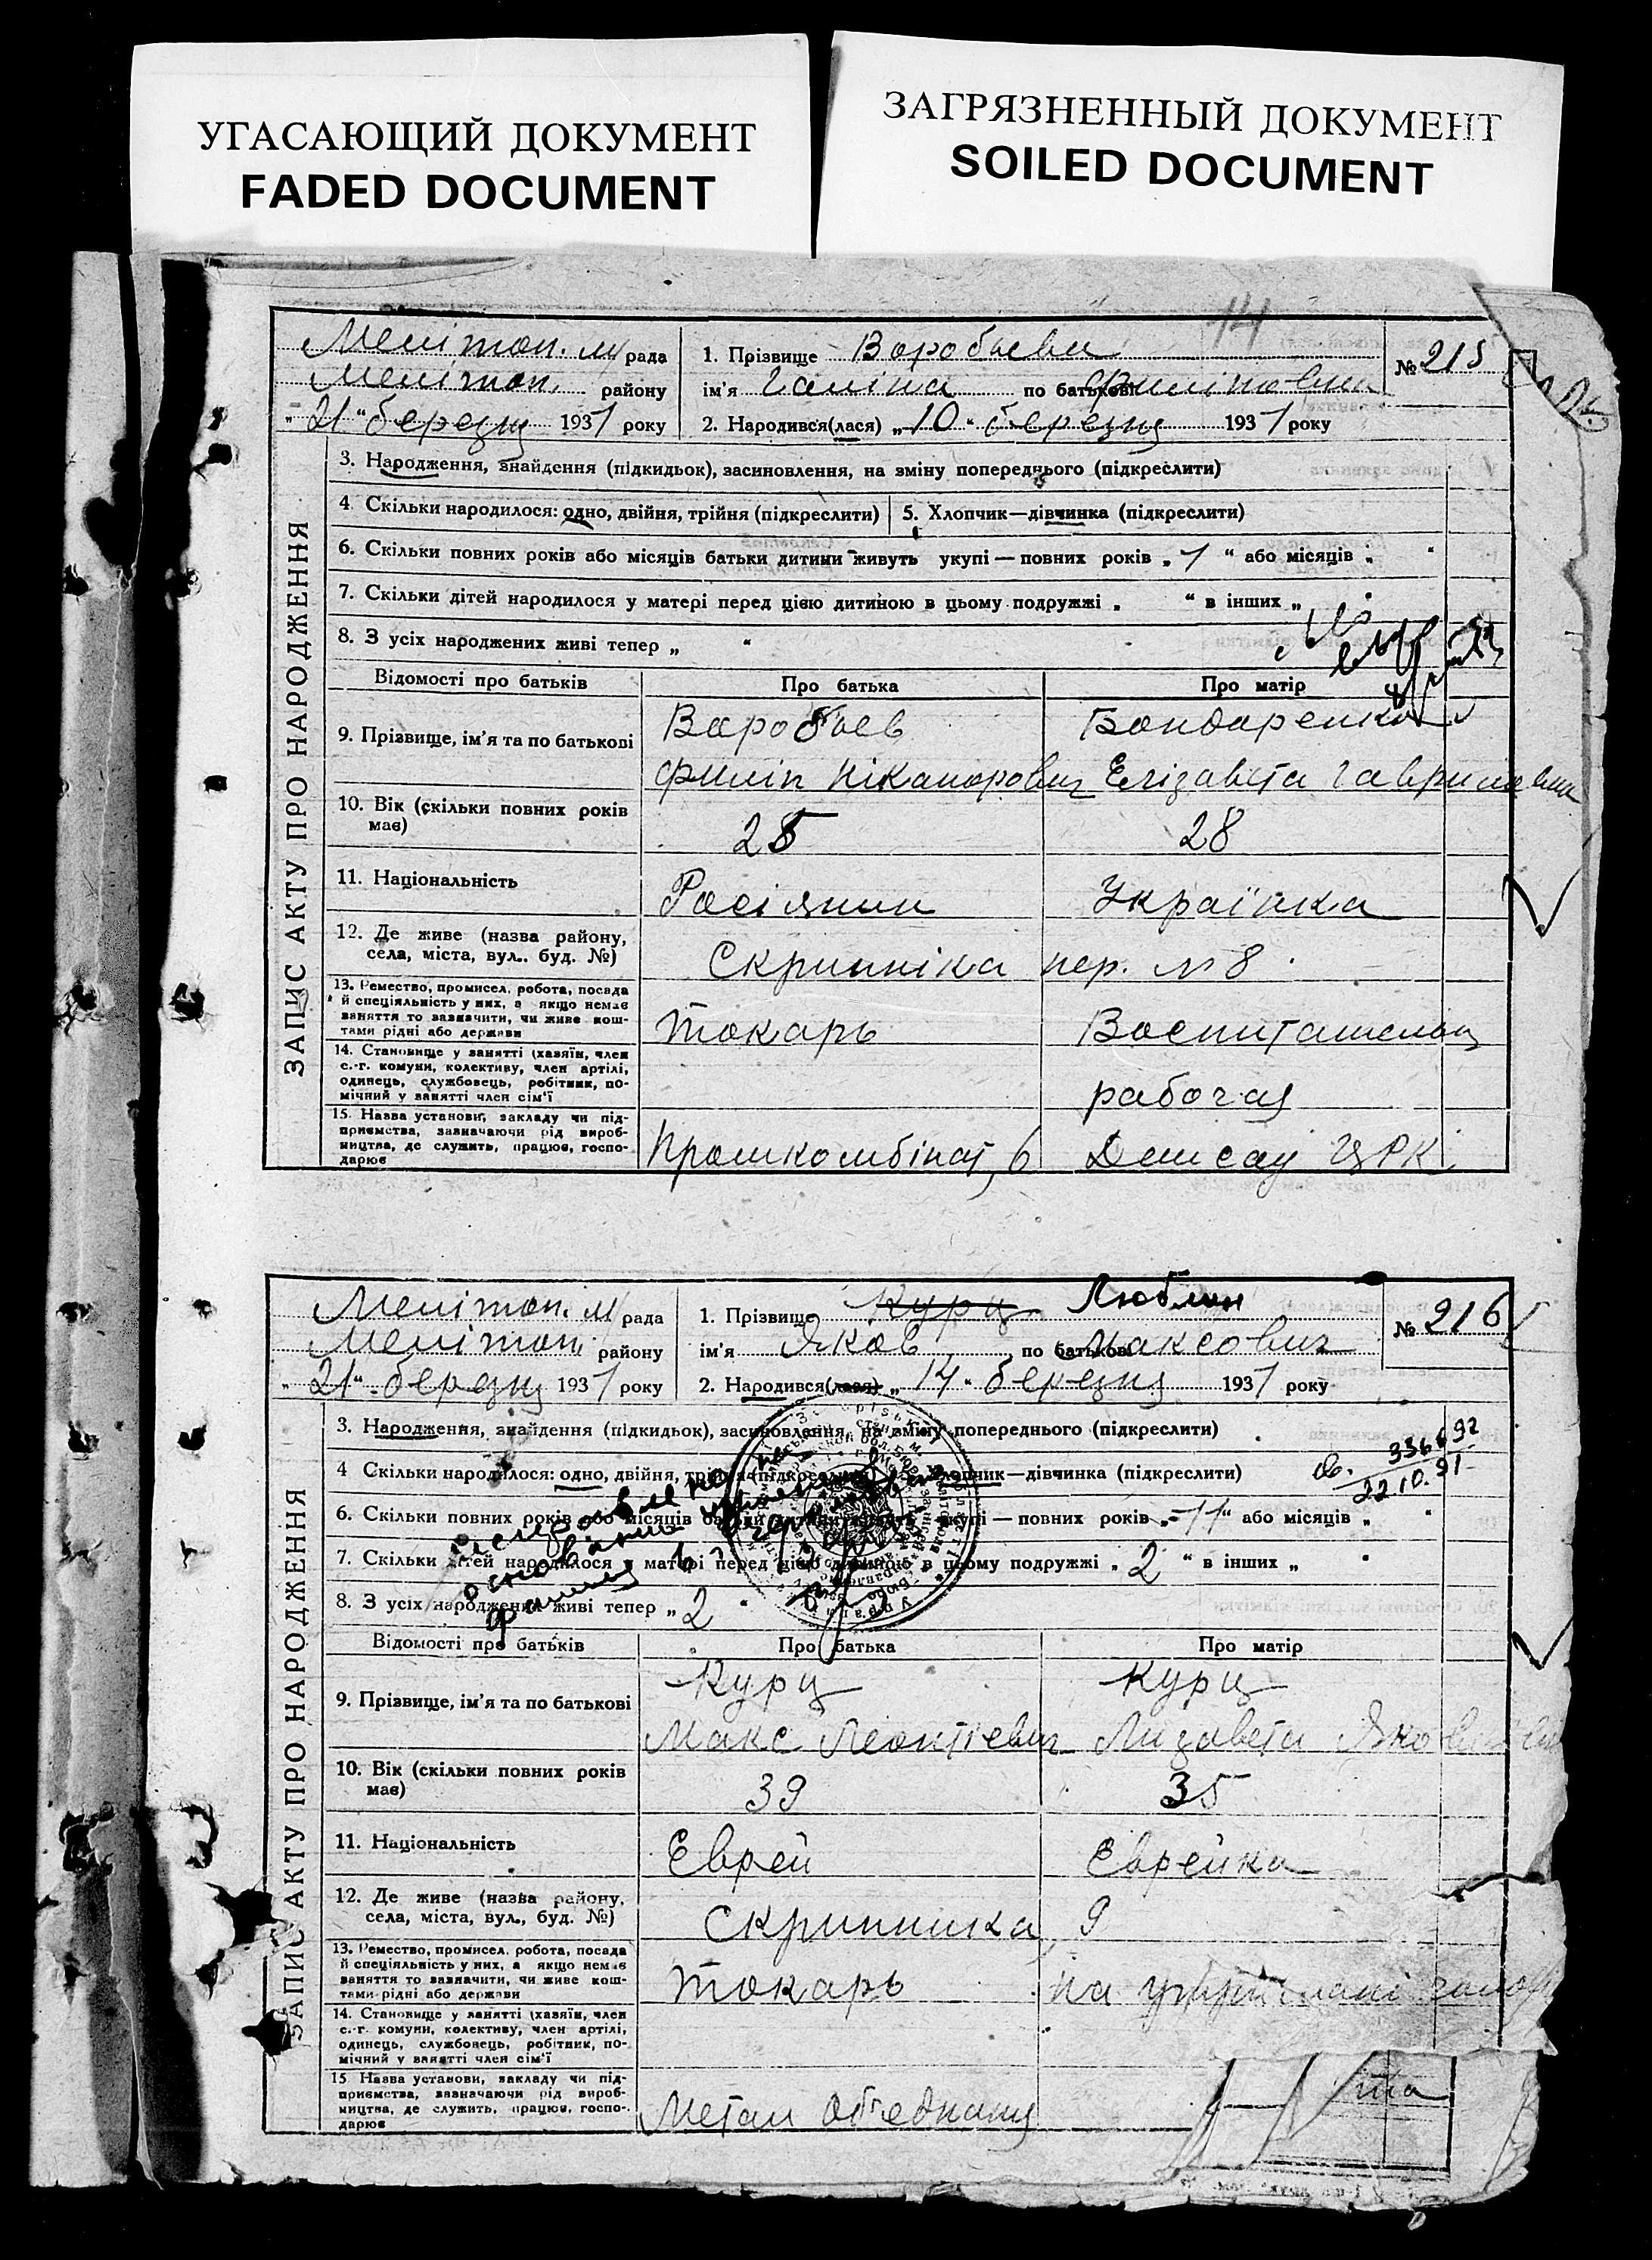 УГАСАЮЩИЙ ДОКУМЕНТ
FADED DOCUMENT
ЗАГРЯЗНЕННЫЙ ДОКУМЕНТ
SOILED DOCUMENT
14
Мелітоп. м/рада
Мелітоп. району
„21“ березня 1931 року
1. Прізвище Воробьева
ім'я Галіна по батькові Филіповна
2. Народився(лася) „10“ березня 1931 року
№ 215
ЗАПИС АКТУ ПРО НАРОДЖЕННЯ
3. Народження, знайдення (підкидьок), засиновлення, на зміну попереднього (підкреслити)
4 Скільки народилося: одно, двійня, трійня (підкреслити)
5. Хлопчик—дівчинка (підкреслити)
6. Скільки повних років або місяців батьки дитини живуть укупі — повних років „1“ або місяців „ “
7. Скільки дітей народилося у матері перед цією дитиною в цьому подружжі „ “ в інших „
8. З усіх народжених живі тепер „ “
Відомості про батьків
Про батька
Про матір
9. Прізвище, ім'я та по батькові
Воробьев
Філіп Ніканорович
Бондаренко
Елізавета Гавриловна
10. Вік (скільки повних років має)
25
28
11. Національність
Росіянин
Українка
12. Де живе (назва району, села, міста, вул.. буд. №)
Скрипніка пер. №8
13. Ремество, промисел, робота, посада й спеціяльність у них, а якщо немає заняття то зазначити, чи живе коштами рідні або держави
Токарь
14. Становище у занятті (хазяїн, член с.-г. комуни, колективу, член артілі, одинець, службовець, робітник, помічний у занятті член сім'ї
рабочая
15. Назва установи, закладу чи підприємства, зазначаючи рід виробництва, де служить, працює, господарює
ЦРК
Мелітоп. м/рада
Мелітоп. району
„21“ березня 1931 року
1. Прізвище Курц Люблин
ім'я Яков по батькові Максович
2. Народився(лася) „14“ березня 1931 року
№ 216
ЗАПИС АКТУ ПРО НАРОДЖЕННЯ
3. Народження, знайдення (підкидьок), засиновлення, на зміну попереднього (підкреслити)
4 Скільки народилося: одно, двійня, трійня (підкреслити)
хлопчик—дівчинка (підкреслити)
336692
22.10.91
6. Скільки повних років або місяців батьки дитини живуть укупі — повних років „11“ або місяців „ “
7. Скільки дітей народилося у матері перед цією дитиною в цьому подружжі „2“ в інших „ “
8. З усіх народжених живі тепер „2“
Відомості про батьків
Про батька
Про матір
9. Прізвище, ім'я та по батькові
Курц
Макс Леонтіевич
Курц
Лизавета
10. Вік (скільки повних років має)
39
35
11. Національність
Еврей
Еврейка
12. Де живе (назва району, села, міста, вул., буд. №)
Скрипника 9
13. Ремество, промисел, робота, посада й спеціяльність у них, а якщо немає заняття то зазначити, чи живе коштами рідні або держави
Токарь
на
14. Становище у занятті (хазяїн, член с.-г. комуни, колективу, член артілі, одинець, службовець, робітник, помічний у занятті член сім'ї
15 Назва установи, закладу чи підприємства, зазначаючи рід виробництва, де служить, працює, господарює
Метал